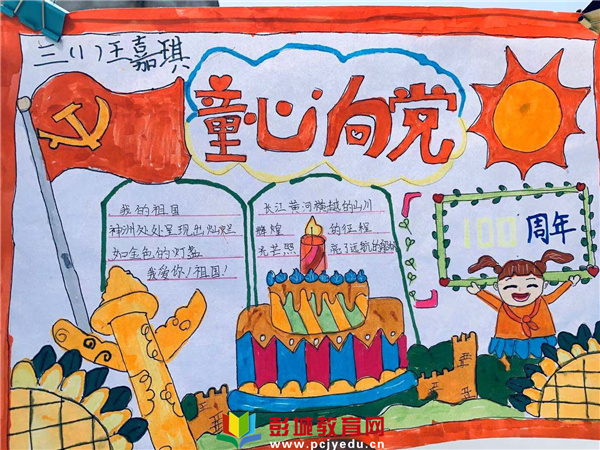 三(1)王嘉琪
童心向党
我的祖国
神州处处呈现出灿烂
如金色的灯盏
我爱你!祖国!
长江黄河横越的山川
辉煌的征程
光芒照亮了远航的
100周年
彭城教育网
www.pcjyedu.cn